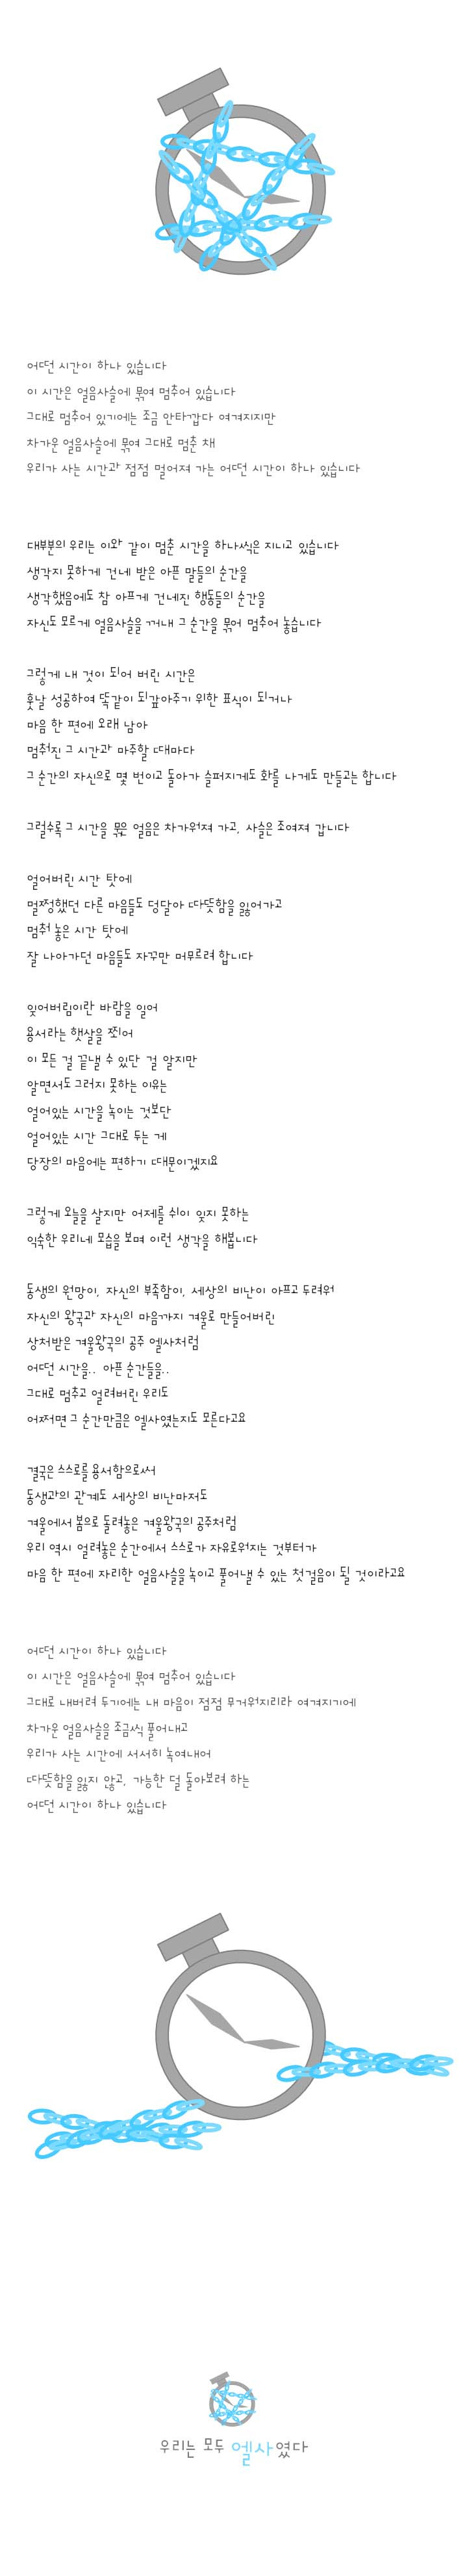 어떤 시간이 하나 있습니다
이 시간은 얼음사슬에 묶여 멈추어 있습니다
그대로 멈추어 있기에는 조금 안타깝다 여겨지지만
차가운 얼음사슬에 묶여 그대로 멈춘 채
우리가 사는 시간과 점점 멀어져 가는 어떤 시간이 하나 있습니다
대부분의 우리는 이와 같이 멈춘 시간을 하나씩은 지니고 있습니다
생각지 못하게 건네 받은 아픈 말들의 순간을
생각했음에도 참 아프게 건네진 행동들의 순간을
자신도 모르게 얼음사슬을 꺼내 그 순간을 묶어 멈추어 놓습니다
그렇게 내 것이 되어 버린 시간은
훗날 성공하여 똑같이 되갚아주기 위한 표식이 되거나
마음 한 편에 오래 남아
멈춰진 그 시간과 마주할 때마다
그 순간의 자신으로 몇 번이고 돌아가 슬퍼지게도 화를 나게도 만들고는 합니다
그럴수록 그 시간을 묶은 얼음은 차가워져 가고, 사슬은 조여져 갑니다
얼어버린 시간 탓에
멀쩡했던 다른 마음들도 덩달아 따뜻함을 잃어가고
멈춰 놓은 시간 탓에
잘 나아가던 마음들도 자꾸만 머무르려 합니다
잊어버림이란 바람을 일어
용서라는 햇살을 쬐어
이 모든 걸 끝낼 수 있단 걸 알지만
알면서도 그러지 못하는 이유는
얼어있는 시간을 녹이는 것보단
얼어있는 시간 그대로 두는 게
당장의 마음에는 편하기 때문이겠지요
그렇게 오늘을 살지만 어제를 쉬이 잊지 못하는
익숙한 우리네 모습을 보며 이런 생각을 해봅니다
동생의 원망이, 자신의 부족함이, 세상의 비난이 아프고 두려워
자신의 왕국과 자신의 마음까지 겨울로 만들어버린
상처받은 겨울왕국의 공주 엘사처럼
어떤 시간을.. 아픈 순간들을..
그대로 멈추고 얼려버린 우리도
어쩌면 그 순간만큼은 엘사였는지도 모른다고요
결국은 스스로를 용서함으로써
동생과의 관계도 세상의 비난마저도
겨울에서 봄으로 돌려놓은 겨울왕국의 공주처럼
우리 역시 얼려놓은 순간에서 스스로가 자유로워지는 것부터가
마음 한 편에 자리한 얼음사슬을 녹이고 풀어낼 수 있는 첫 걸음이 될 것이라고요
어떤 시간이 하나 있습니다
이 시간은 얼음사슬에 묶여 멈추어 있습니다
그대로 내버려 두기에는 내 마음이 점점 무거워지리라 여겨지기에
차가운 얼음사슬을 조금씩 풀어내고
우리가 사는 시간에 서서히 녹여내어
따뜻함을 잃지 않고, 가능한 덜 돌아보려 하는
어떤 시간이 하나 있습니다
우리는 모두 엘사였다